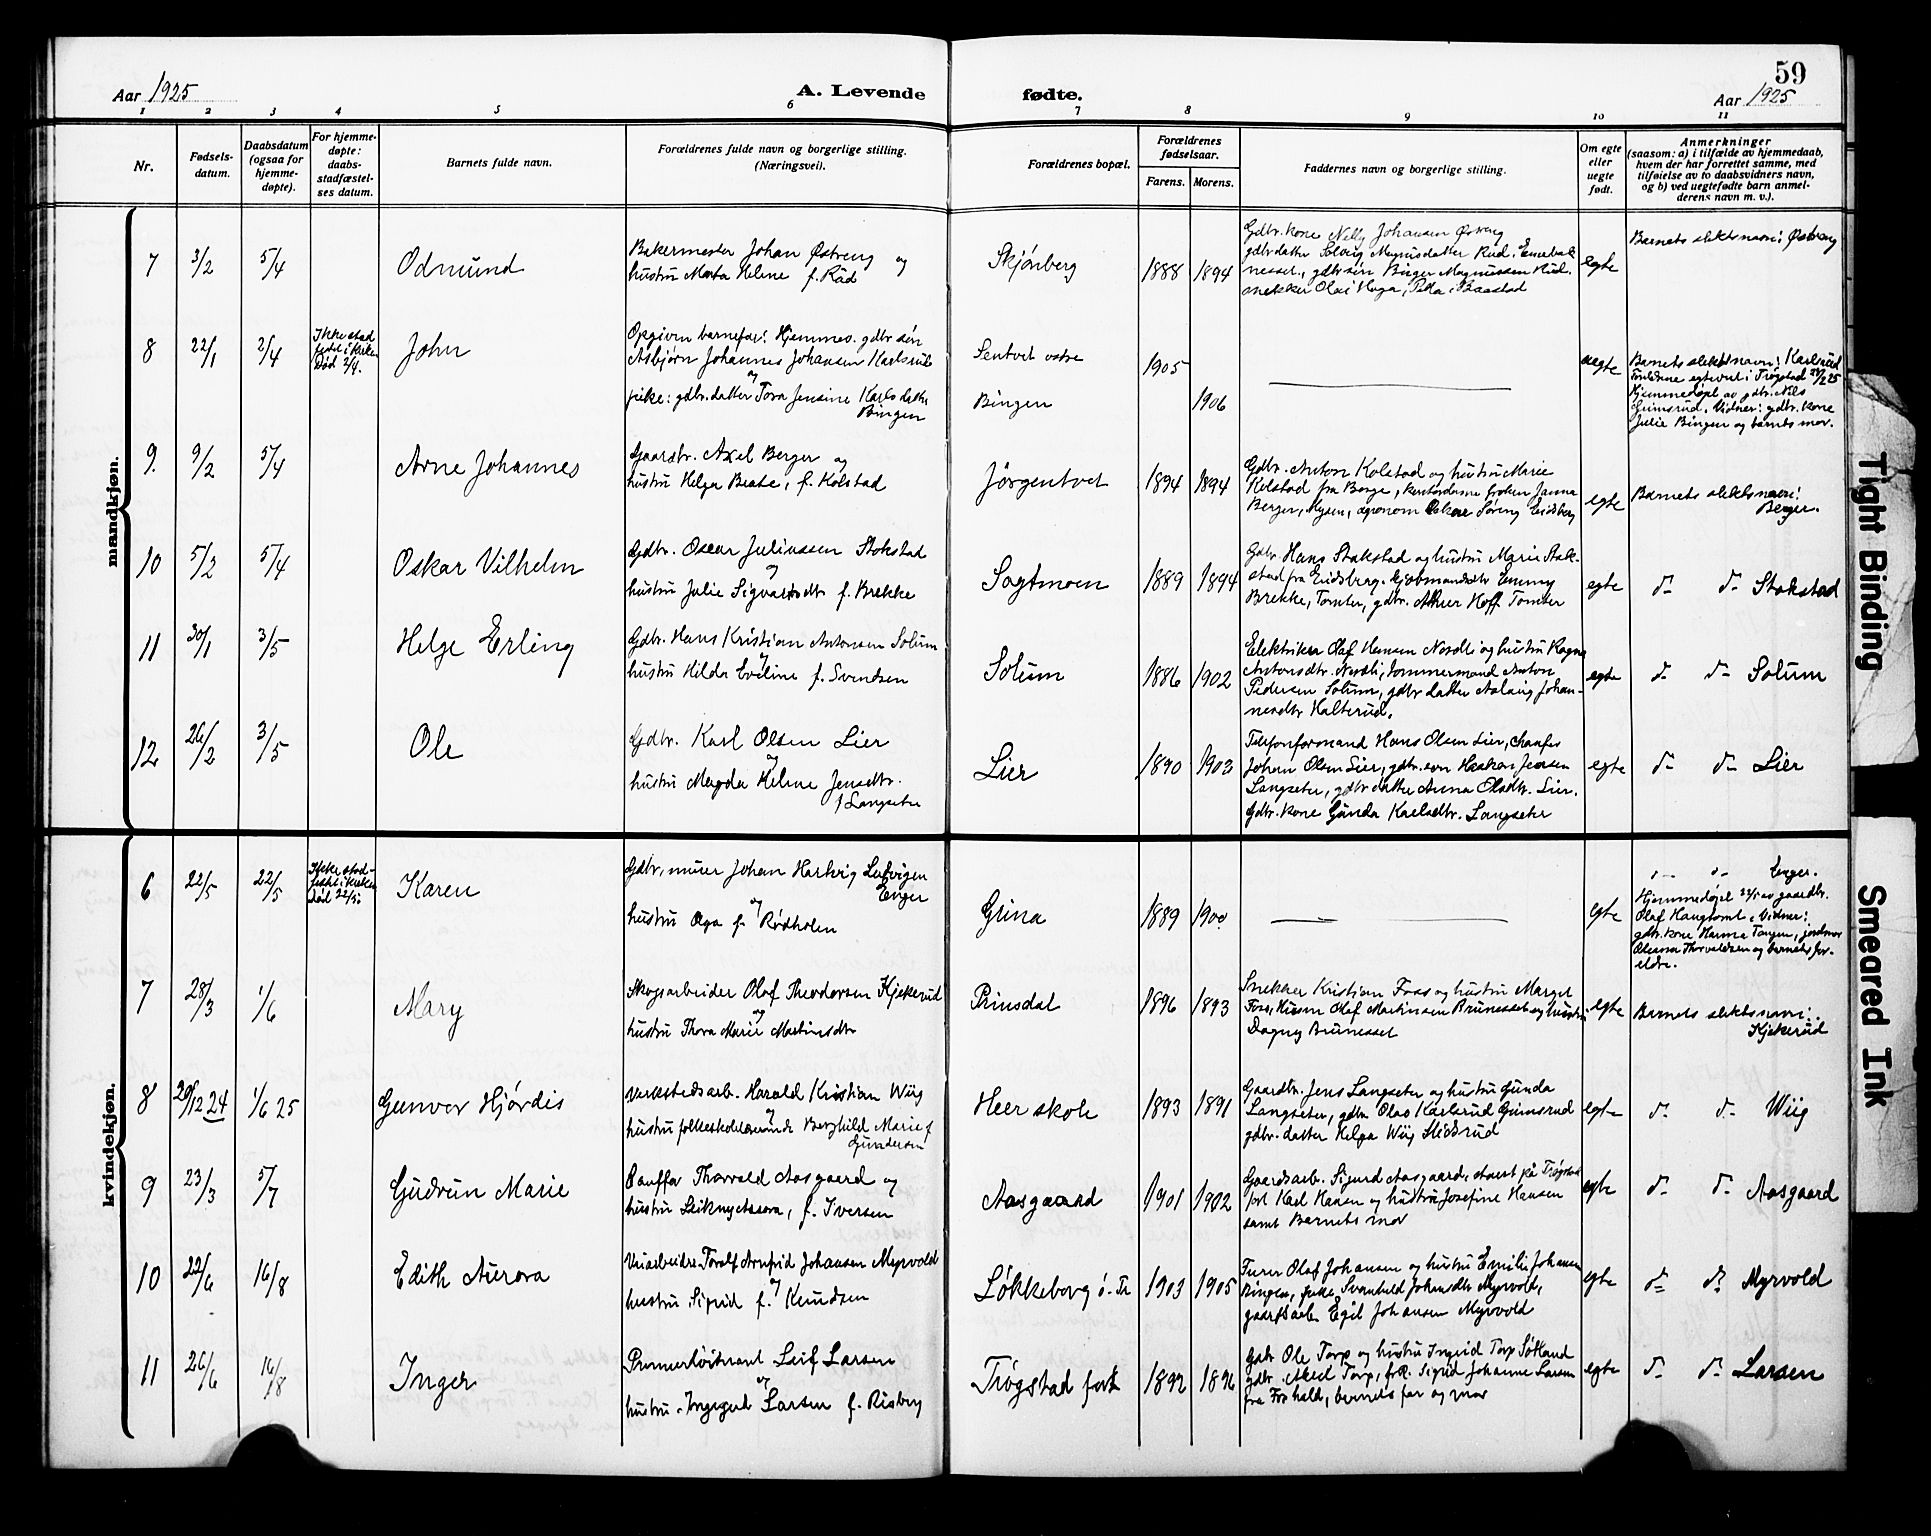 59
Aar 1925
A. Levende fødte.
Aar 1925
1 2 3 4 5 6 7 8 9 10 11
Nr.
Fødsels-
datum.
Daabsdatum
(ogsaa for
hjemme-
døpte).
For hjemme-
døpte:
daabs-
stadfæstel-
ses datum.
Barnets fulde navn.
Forældrenes fulde navn og borgerlige stilling.
(Næringsvei).
Forældrenes bopæl.
Forældrenes
fødselsaar.
Farens. Morens.
Faddernes navn og borgerlige stilling.
Om egte
eller
uegte
født.
Anmerkninger
(saasom: a) i tilfælde av hjemmedaab,
hvem der har forrettet samme, med
tilføielse av to daabsvidners navn,
og b) ved uegtefødte barn anmel-
derens navn m. v.).
mandkjøn.
7
3/2
5/4
Odmund
Bakermester Johan Østreng og
hustru Marta Helene f. Råd
Skjönberg
1888 1894
Gdbr. kone Nelly Johansen Østreng
gdbr. datter Solveig Magnusdatter Rud,
gdbr. søn Birger Magnussen Rud.
snekker Olai Haga, Båstad
egte
Barnets slektsnavn: Østreng
8
22/1
2/4
Ikke stad
fæstet i kirken
Død 2/4.
John
Opgiven barnefar: Hjemmev. gdbr. søn
Asbjørn Johannes Johansen Karlsrud
og
pike: gdbr. datter Tora Jensine Karls datter
Bingen
Sentvet østre
Bingen
1905
1906
uegte
Barnets slektsnavn: Karlsrud
Forældrene egteviet i Trøgstad 25
Hjemmedøpt av gdbr. Nils
Grimsrud. Vidner: gdbr. kone
Julie Bingen og barnets mor.
9.
9/2
5/4
Arne Johannes
Gaardbr. Axel Berger og
hustru Helga Beate, f. Kolstad
Jörgentvet
1894 1894
Gdbr. Anton Kolstad og hustru Marie
Kolstad fra Borge, kontordame frøken Janna
Berger, Mysen, agronom Oskar Søreng Eidsberg
egte
Barnets slektsnavn:
Berger.
10
5/2
5/4
Oskar Vilhelm
Gdbr. Oscar Juliussen Stokstad
og
hustru Julie Sigvartsdtr f. Brekke
Sagtmoen
1889 1894
Gdbr. Hans Stokstad og hustru Marie Stok-
stad fra Eidsberg. kjøbmandsdtr Emmy
Brekke, Tomter, gdbr. Hoff Tomter
egte
d- d- Stokstad
11
30/1
3/5
Helge Erling
Gdbr. Hans Kristian Antonsen Solum
og
hustru Hilda Eveline f. Svendsen
Solum
1886 1902
Elektriker Olaf Hansen Nordli og hustru Ragna
Antonsdtr. Nordli, tømmermand Anton
Pedersen Solum, gdbr datter Aslaug Johan-
nesdtr Kalterud.
egte
d- d- Solum
12
26/2
3/5
Ole
Gdbr. Karl Olsen Lier
og
hustru Magda Helene Jensdtr.
f Langseter
Lier
1890 1903
Telefonformand Hans Olsen Lier, chauffør
Johan Olsen Lier, gdbr. søn Haakon Jensen
Langseter, gdbr datter Anna Olsdtr. Lier.
Gdbr. kone Gunda Karlsdtr. Langseter
egte
d- d- Lier
kvindekjøn.
6
22/5
22/5
Ikke stad-
fæstet i kirken
død 22/5.
Karen
Gdbr, murer Johan Hartvig Ludvigsen
Enger
og
hustru Olga f. Rødholen
Grina
1889 1900
egte
d- d- Enger.
Hjemmedøpt 22/5 av gaardbr.
Olaf Haugtomt. Vidner:
gdbr. kone Hanna Tangen, jordmor
Thorvaldsen og barnets for-
eldre.
7
28/3
1/6
Mary
Skogsarbeider Olaf Theodorsen Kjekerud
og
hustru Thora Marie Martinsdtr
Prinsdal
1896 1893
Snekker Kristian Foss og hustru Margit
Foss, Olaf Martinsen Brunessel og hustru
Dagny Brunessel
egte
Barnets slektsnavn:
Kjekerud
8
20/12 24
1/6 25
Gunvor Hjördis
Verkstedsarb. Harald Kristian Wiig
og
hustru folkeskolelærerinde Berghild Marie f
Gundersen
Heer skole
1893 1891
Gaardbr. Jens Langseter og hustru Gunda
Langseter, gdbr. Olav Karlsrud Grimsrud
gdbr. datter Helga Wiig Slidsrud
egte
d- d- Wiig
9
23/3
5/7
Gudrun Marie
Thorvald Aasgaard og
hustru f. Iversen
Aasgaard
1901 1902
Gaardsarb. Sigurd Aasgaard, på Trøgstad
fort Karl Hansen og hustru Josefine Hansen
samt Barnets mor
egte
d- d- Aasgaard
10
22/6
16/8
Edith Aurora
Veiarbeider Toralf Arnfrid Johansen Myrvold
og
hustru Sigrid f. Knudsen
Lökkeborg ö. Tr
1903 1905
Furer Olaf Johansen og hustru Emilie Johansen
Bingen, pike Svanhild Johansdtr Myrvold,
gaardsarb. Egil Johansen Myrvold
egte
d- d- Myrvold
11
26/6
16/8
Inger
Premierlöitnant Leif Larsen
og
hustru Ingegerd Larsen f. Risberg
Trögstad fort
1892 1896
Gdbr Ole Torp og hustru Ingrid Torp Søtland
gdbr. Aksel Torp, frk. Sigrid Johanne Larsen
fra Fr.hald, barnets far og mor
egte
d- d- Larsen
Tight Binding
Smeared Ink